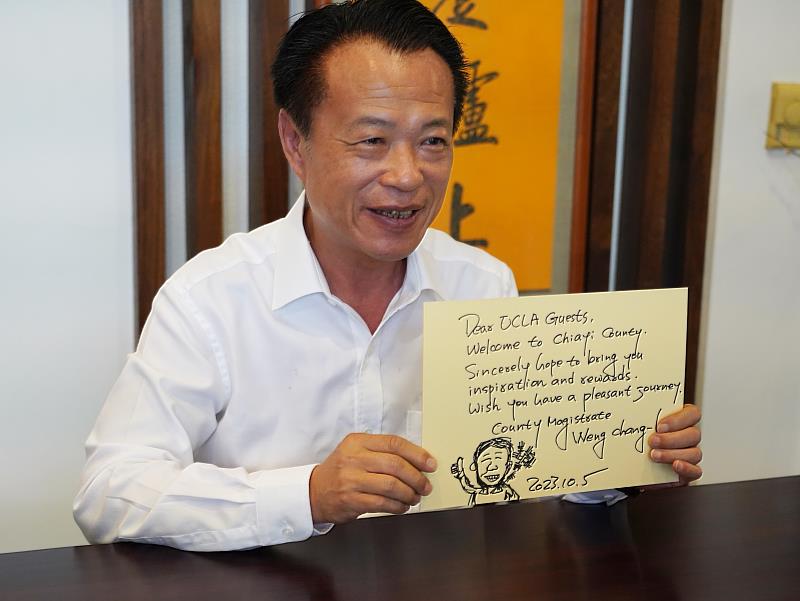 Dear UCLA Guests,
Welcome to Chiayi County.
Sincerely hope to bring you
inspiration and rewards.
Wish you have a pleasant journey.
County Magistrate
Weng Chang-
2023.10.5